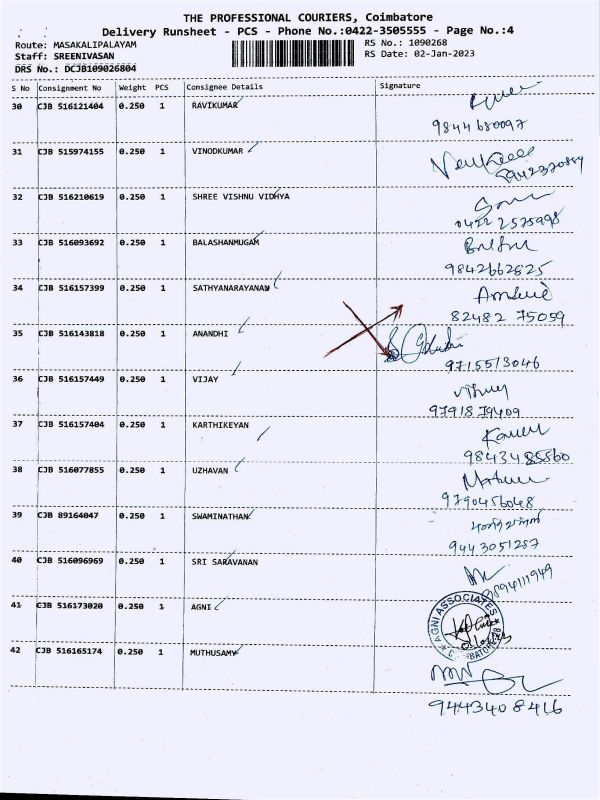 THE PROFESSIONAL COURIERS, Coimbatore
Delivery Runsheet - PCS - Phone No.:0422-3505555 - Page No.:4
Route: MASAKALIPALAYAM
RS No.: 1090268
Staff: SREENIVASAN
RS Date: 02-Jan-2023
DRS No.: DCJB109026804
S No Consignment No Weight PCS Consignee Details Signature
30 CJB 516121404 0.250 1 RAVIKUMAR
9844680097
31 CJB 515974155 0.250 1 VINODKUMAR
32 CJB 516210619 0.250 1 SHREE VISHNU VIDHYA
0422 2575998
33 CJB 516093692 0.250 1 BALASHANMUGAM
9842662825
34 CJB 516157399 0.250 1 SATHYANARAYANAN
82482 75059
35 CJB 516143818 0.250 1 ANANDHI
9715513046
36 CJB 516157449 0.250 1 VIJAY
9791879409
37 CJB 516157404 0.250 1 KARTHIKEYAN
9843485560
38 CJB 516077855 0.250 1 UZHAVAN
9790456048
39 CJB 89164047 0.250 1 SWAMINATHAN
9443051287
40 CJB 516096969 0.250 1 SRI SARAVANAN
9894111949
41 CJB 516173020 0.250 1 AGNI
AGNI ASSOCIATES
42 CJB 516165174 0.250 1 MUTHUSAMY
9443408416